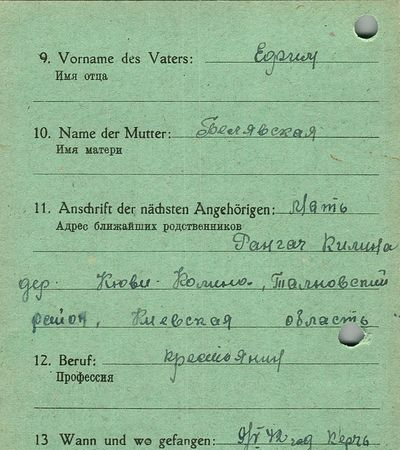 9. Vorname des Vaters: Ефим
Имя отца
10. Name der Mutter: Белявская
Имя матери
11. Anschrift der nächsten Angehörigen: Мать
Адрес ближайших родственников
Килина
дер. Талновский
район, Киевская область
12. Beruf: крестьянин
Профессия
13 Wann und wo gefangen: 42 год Керчь